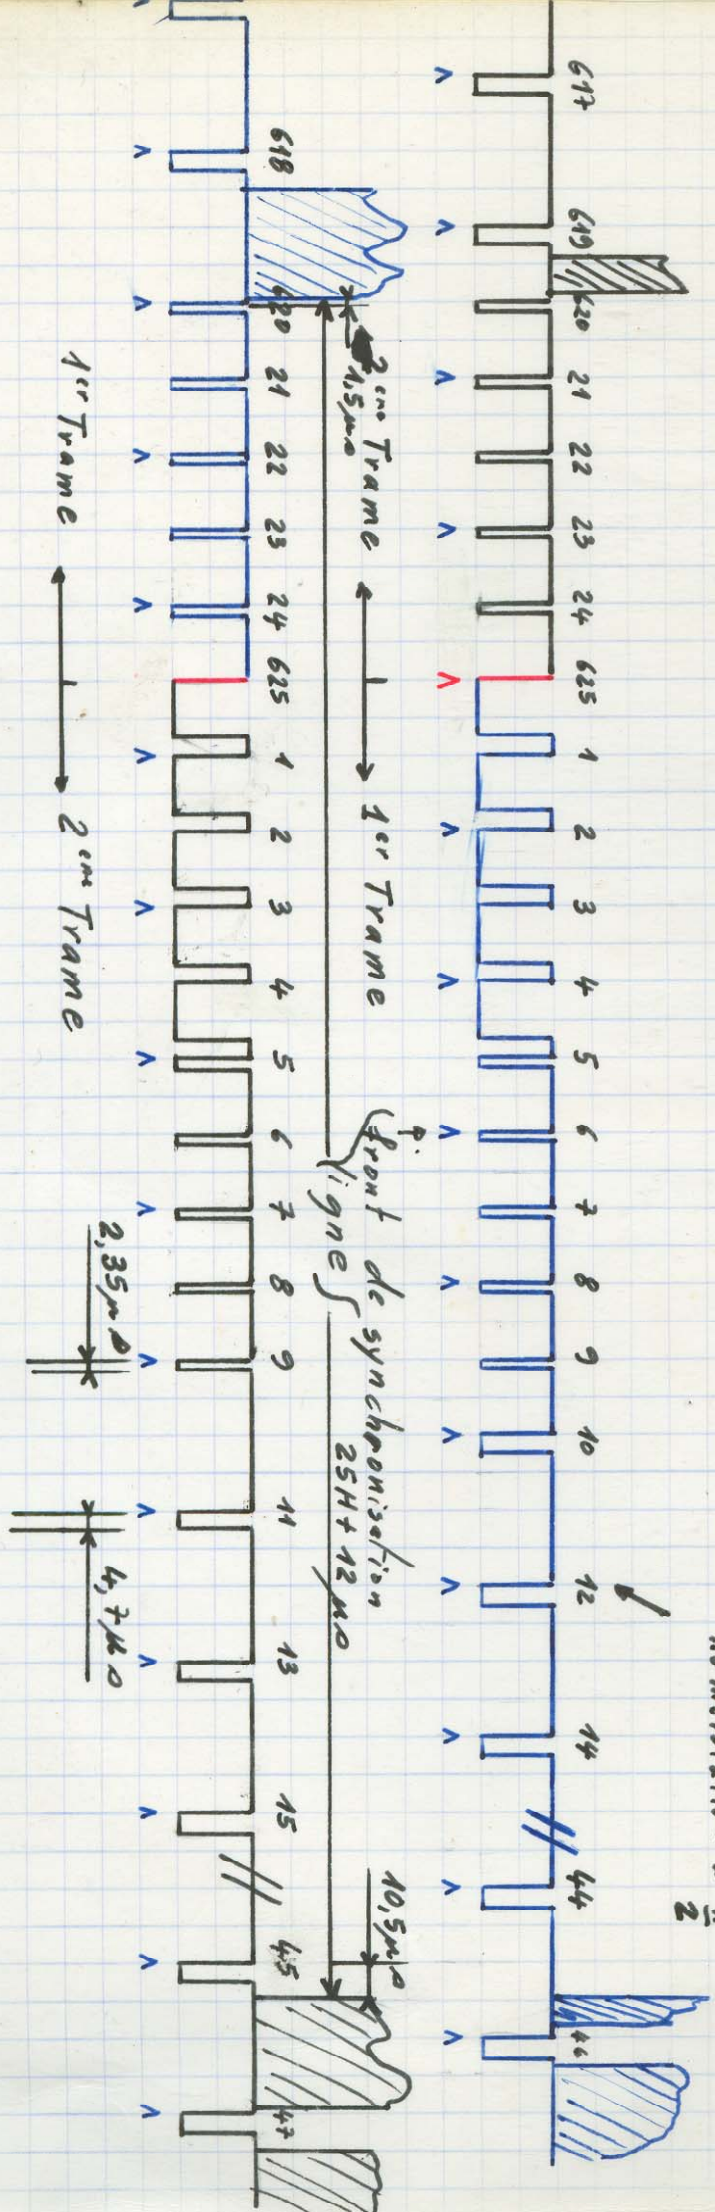 2
617 619 620 21 22 23 24 625 1 2 3 4 5 6 7 8 9 10 12 14 44 46
2ème Trame 1er Trame
1,5µs
(front de synchronisation
ligne)
25H + 12 µs
10,5µs
618 620 21 22 23 24 625 1 2 3 4 5 6 7 8 9 11 13 15 45 47
2,35µs 4,7µs
1er Trame 2ème Trame